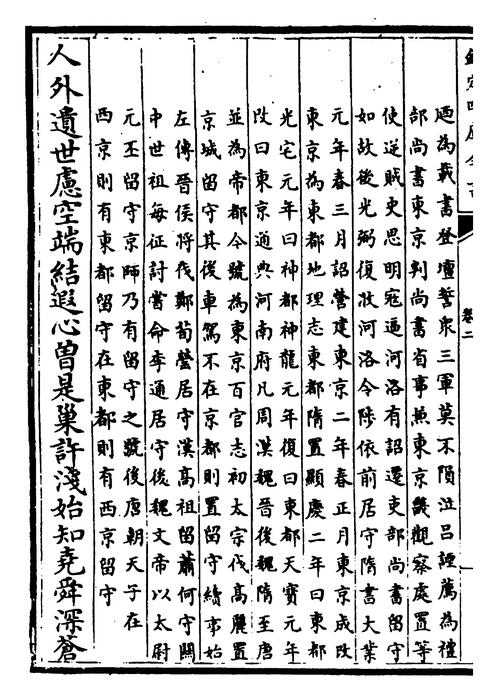 欽定四庫全書
卷二
廼為載書登壇誓衆三軍莫不隕泣呂諲薦為禮
部尚書東京判尚書省事兼東京畿觀察處置等
使逆賊史思明寇逼河洛有詔還吏部尚書留守
如故後光弼復收河洛令陟依前居守隋書大業
元年春三月詔營建東京二年春正月東京成改
東京為東都地理志東都隋置顯慶二年曰東都
光宅元年曰神都神龍元年復曰東都天寶元年
改曰東京通典河南府凡周漢魏晉後魏隋至唐
並為帝都今號為東京百官志初太宗伐高麗置
京城留守其後車駕不在京都則置留守續事始
左傳晉侯將伐鄭荀罃居守漢高祖留蕭何守關
中世祖每征討嘗命李通居守後魏文帝以太尉
元丕留守京師乃有留守之號後唐朝天子在
西京則有東都留守在東都則有西京留守
人外遺世慮空端結遐心曽是巢許淺始知堯舜深蒼